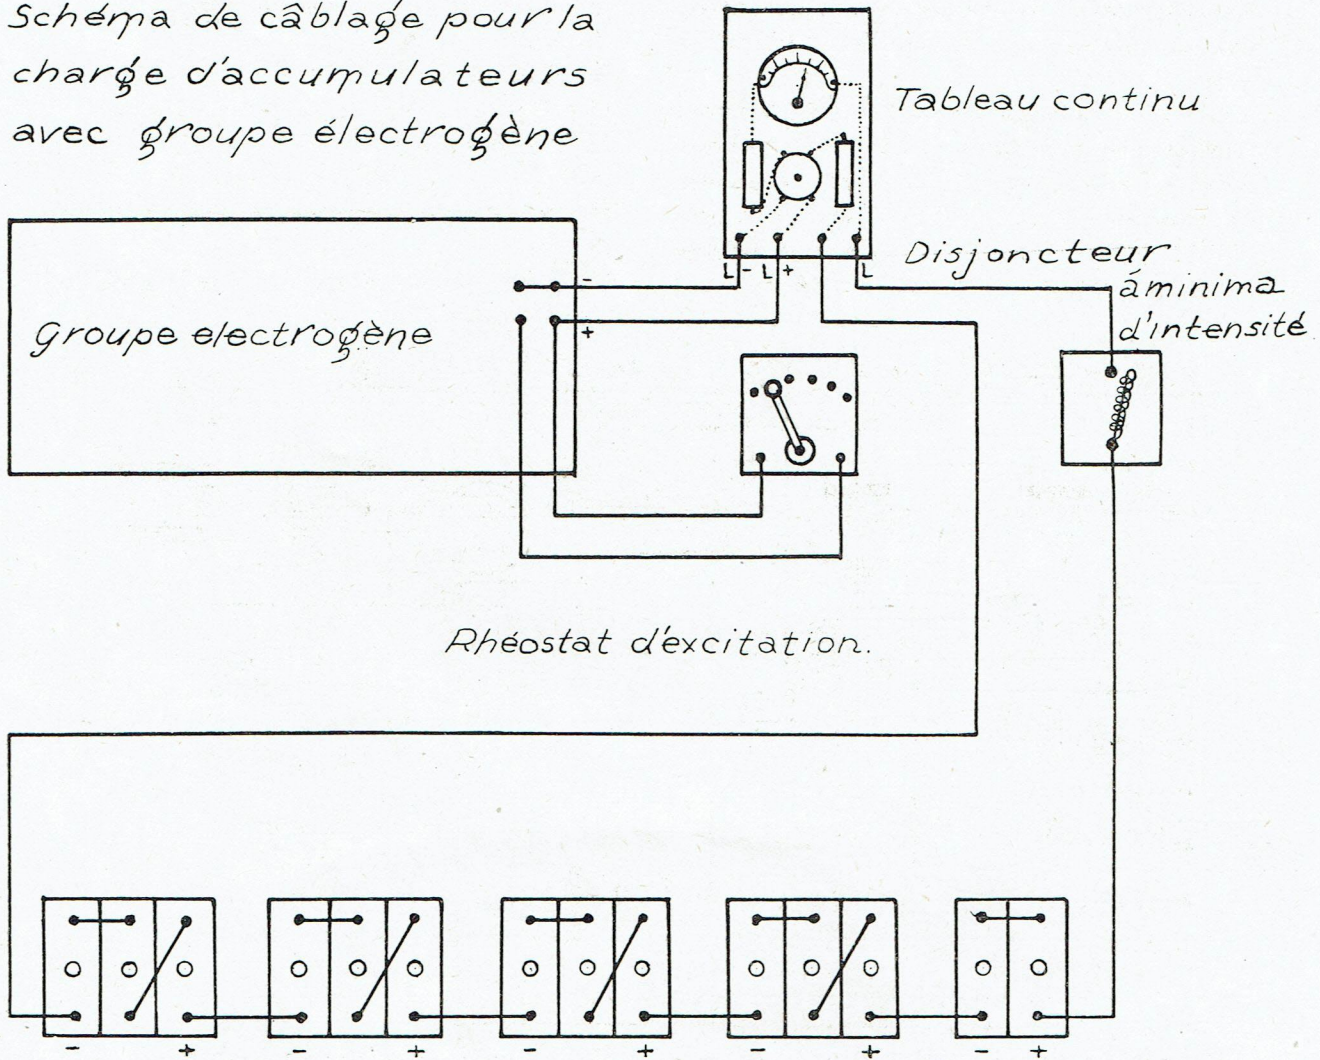 Schéma de câblage pour la
charge d'accumulateurs
avec groupe électrogène
Tableau continu
L - L + L
Disjoncteur
áminima
d'intensité
-
Groupe electrogène
+
Rhéostat d'excitation.
- + - + - + - + - +